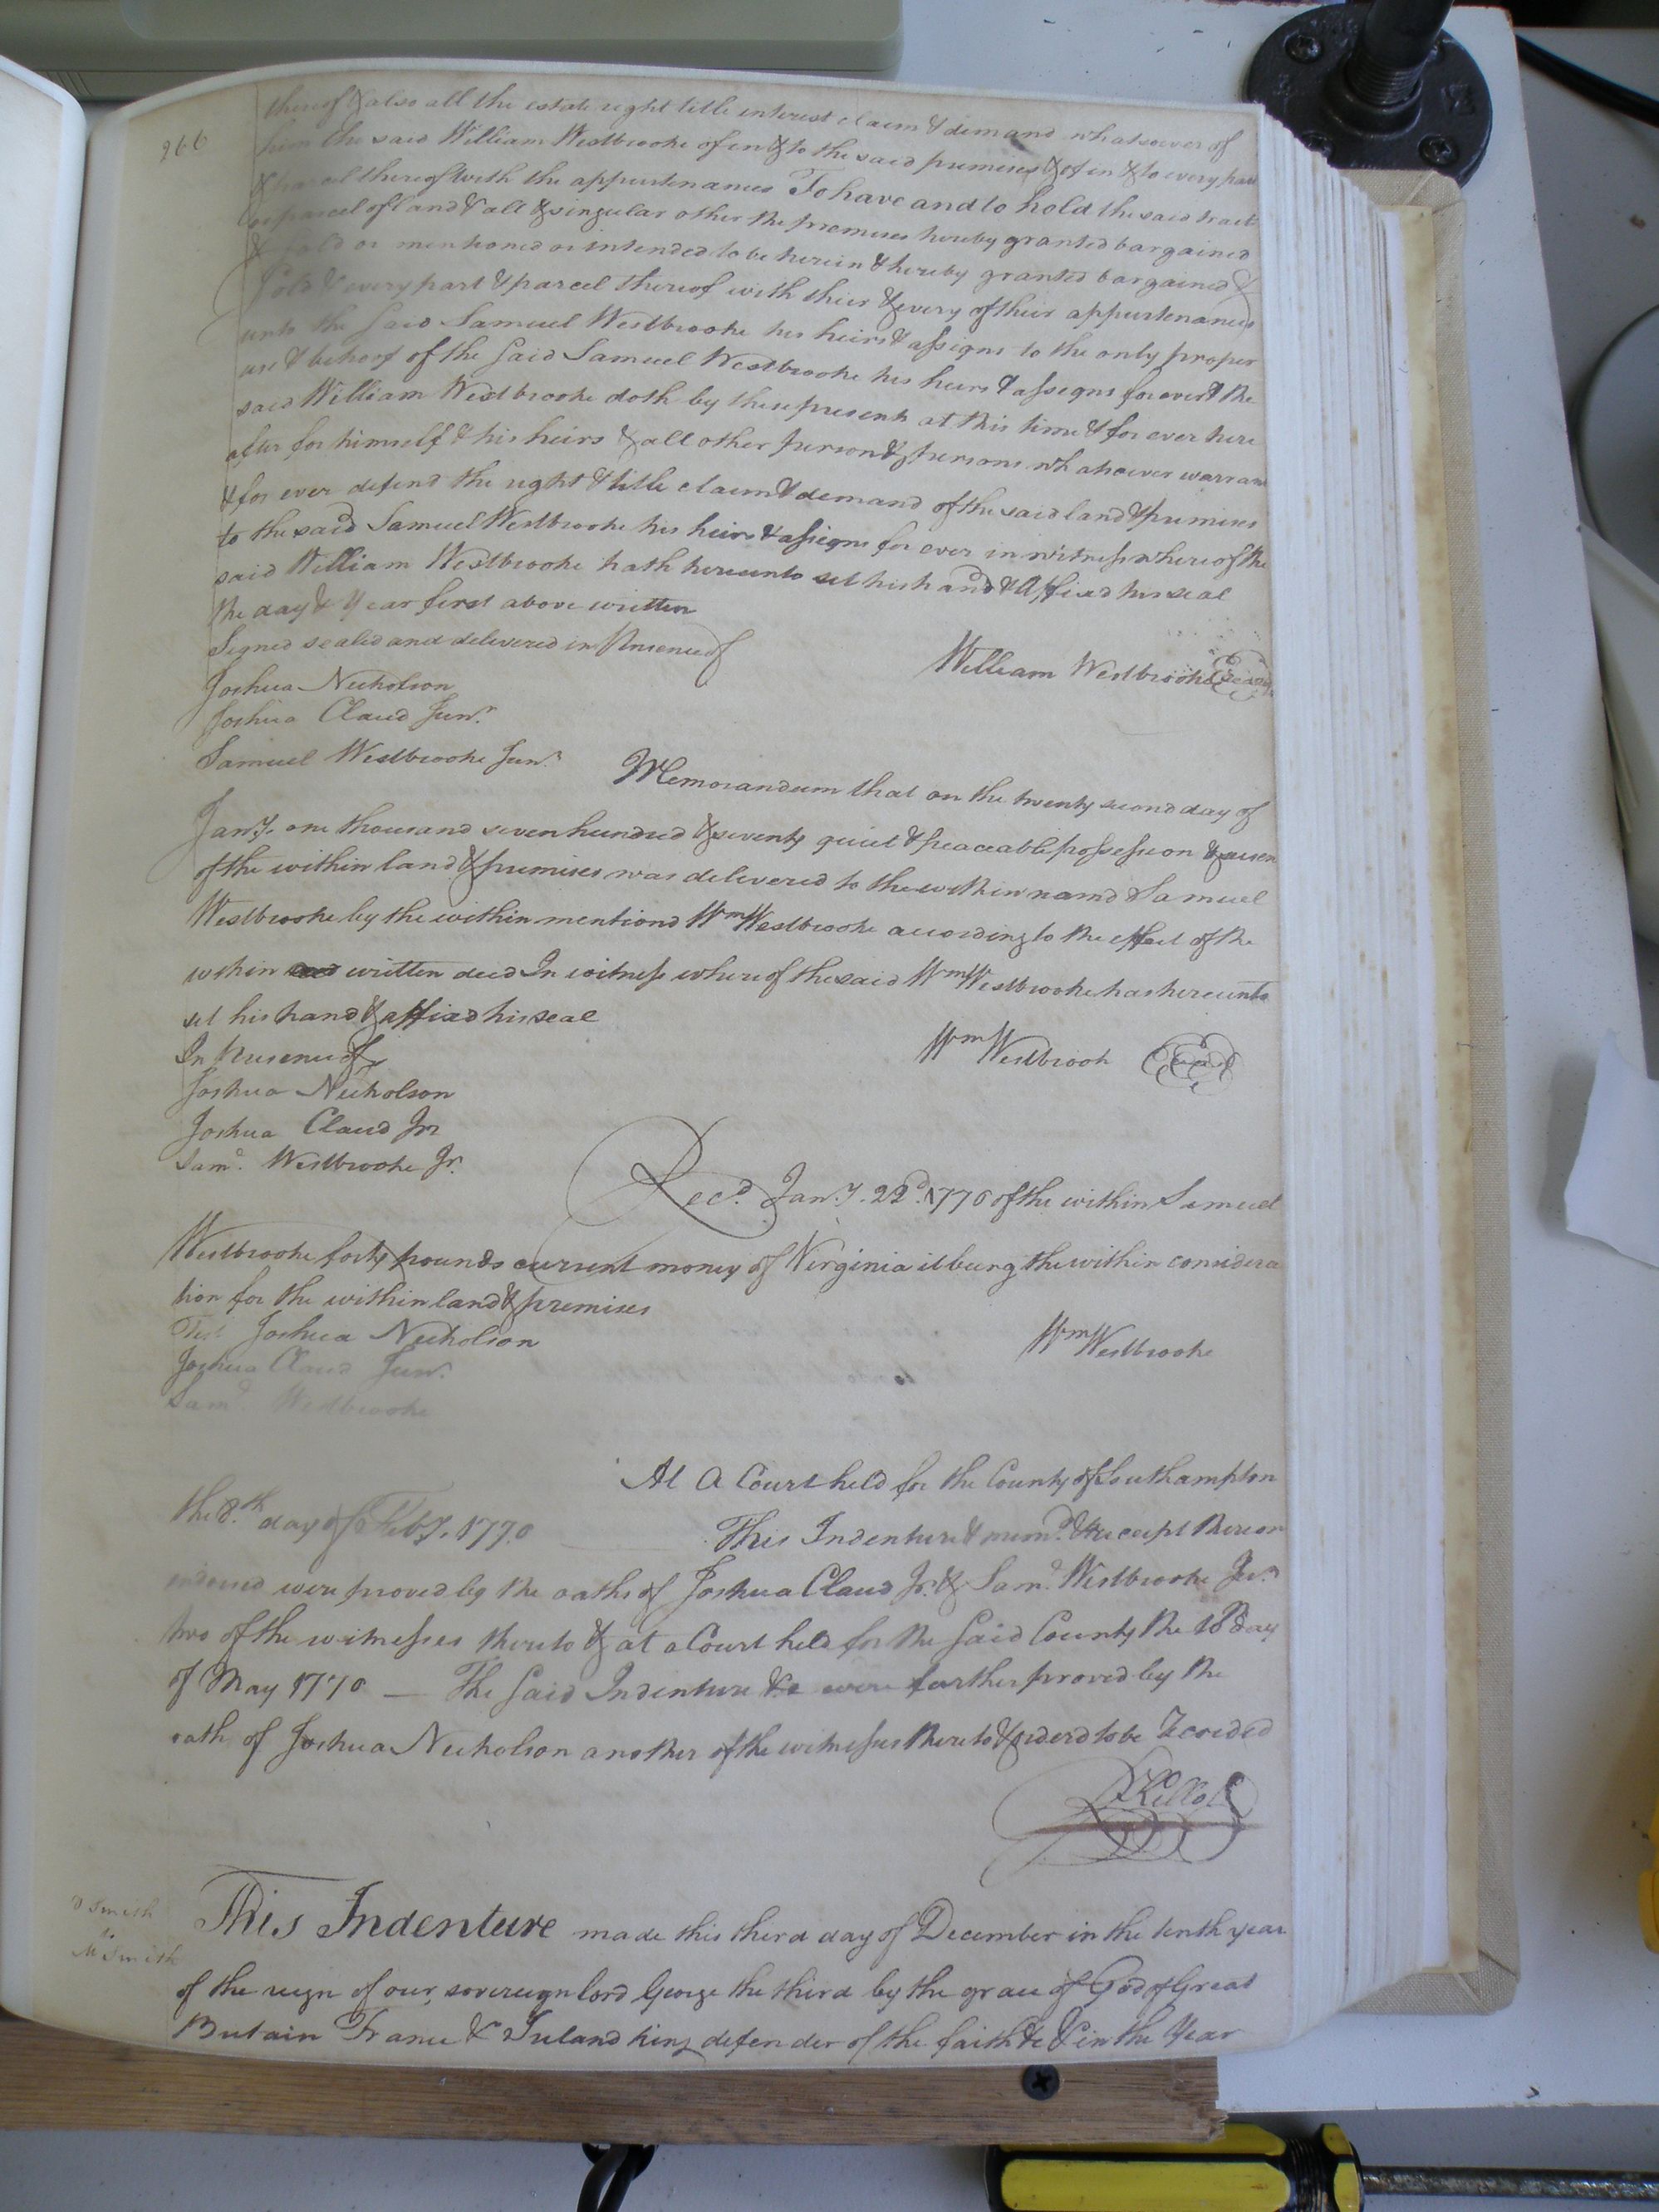 266
thereof & also all the estate right title interest claim & demand whatsoever of
him the said William Westbrooke of in & to the said premises & of in & to every part
& parcel thereof with the appurtenances To have and to hold the said tract
or parcel of land & all & singular other the premises hereby granted bargained
& sold or mentioned or intended to be herein & hereby granted bargained &
sold & every part & parcel thereof with their & every of their appurtenances
unto the said Samuel Westbrooke his heirs & assigns to the only proper
use & behoof of the said Samuel Westbrooke his heirs & assigns for ever & the
said William Westbrooke doth by these presents at this time & for ever here
after for himself & his heirs & all other person & persons whatsoever warrant
& for ever defend the right & title claim & demand of the said land & premises
to the said Samuel Westbrooke his heirs & assigns for ever in witness whereof the
said William Westbrooke hath hereunto set his hand & affixed his seal
the day & Year first above written
Signed sealed and delivered in Presence of
William Westbrooke Seal
Joshua Nicholson
Joshua Claud Junr.
Samuel Westbrooke Junr.
Memorandum that on the twenty second day of
Jany. one thousand seven hundred & seventy quiet & peaceable possession & seisen
of the within land & premises was delivered to the within namd Samuel
Westbrooke by the within mentiond Wm Westbrooke according to the effect of the
within written deed In witness where of the said Wm Westbrooke has hereunto
set his hand & affixd his seal
In Presence of
Wm Westbrook Seal
Joshua Nicholson
Joshua Claud Jr
Saml. Westbrooke Jr.
Recd. Jany. 22d. 1770 of the within Samuel
Westbrooke forty pounds current money of Virginia it being the within considera
tion for the within land & premises
Test Joshua Nicholson
Wm Westbrooke
Joshua Claud Junr.
Saml. Westbrooke
At A Court held for the County of Southampton
the 8th. day of Feby. 1770
This Indenture & memd. & receipt thereon
endorsed were proved by the oaths of Joshua Claud Jr. & Saml. Westbrooke Junr
two of the witnesses thereto & at a Court held for the said County the 10th day
of May 1770 — The said Indenture &c were further proved by the
oath of Joshua Nicholson another of the witnesses thereto & orderd to be Recorded
R Kello
D Smith
to
M Smith
This Indenture made this third day of December in the tenth year
of the reign of our sovereign lord George the third by the grace of God of Great
Britain France & Ireland king defender of the faith &c & in the Year